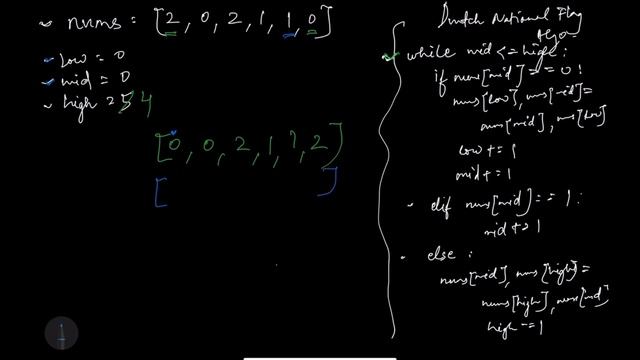 nums = [2, 0, 2, 1, 1, 0]
low = 0
mid = 0
high = 5 4
[0, 0, 2, 1, 1, 2]
[ ]
Dutch National Flag
Algo-
while mid <= high:
if nums[mid] == 0:
nums[low], nums[mid] =
nums[mid], nums[low]
low += 1
mid += 1
elif nums[mid] == 1:
mid += 1
else:
nums[mid], nums[high] =
nums[high], nums[mid]
high -= 1